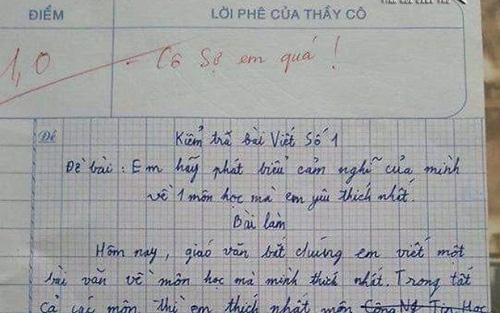 ĐIỂM
LỜI PHÊ CỦA THẦY CÔ
1,0
Cô sợ em quá !
Đề
Kiểm tra bài Viết Số 1
Đề bài : Em hãy phát biểu cảm nghĩ của mình
về 1 môn học mà em yêu thích nhất.
Bài làm
Hôm nay, giáo văn bắt chúng em viết một
bài văn về môn học mà mình thích nhất. Trong tất
cả các môn thì em thích nhất môn Công Ng Tin Học